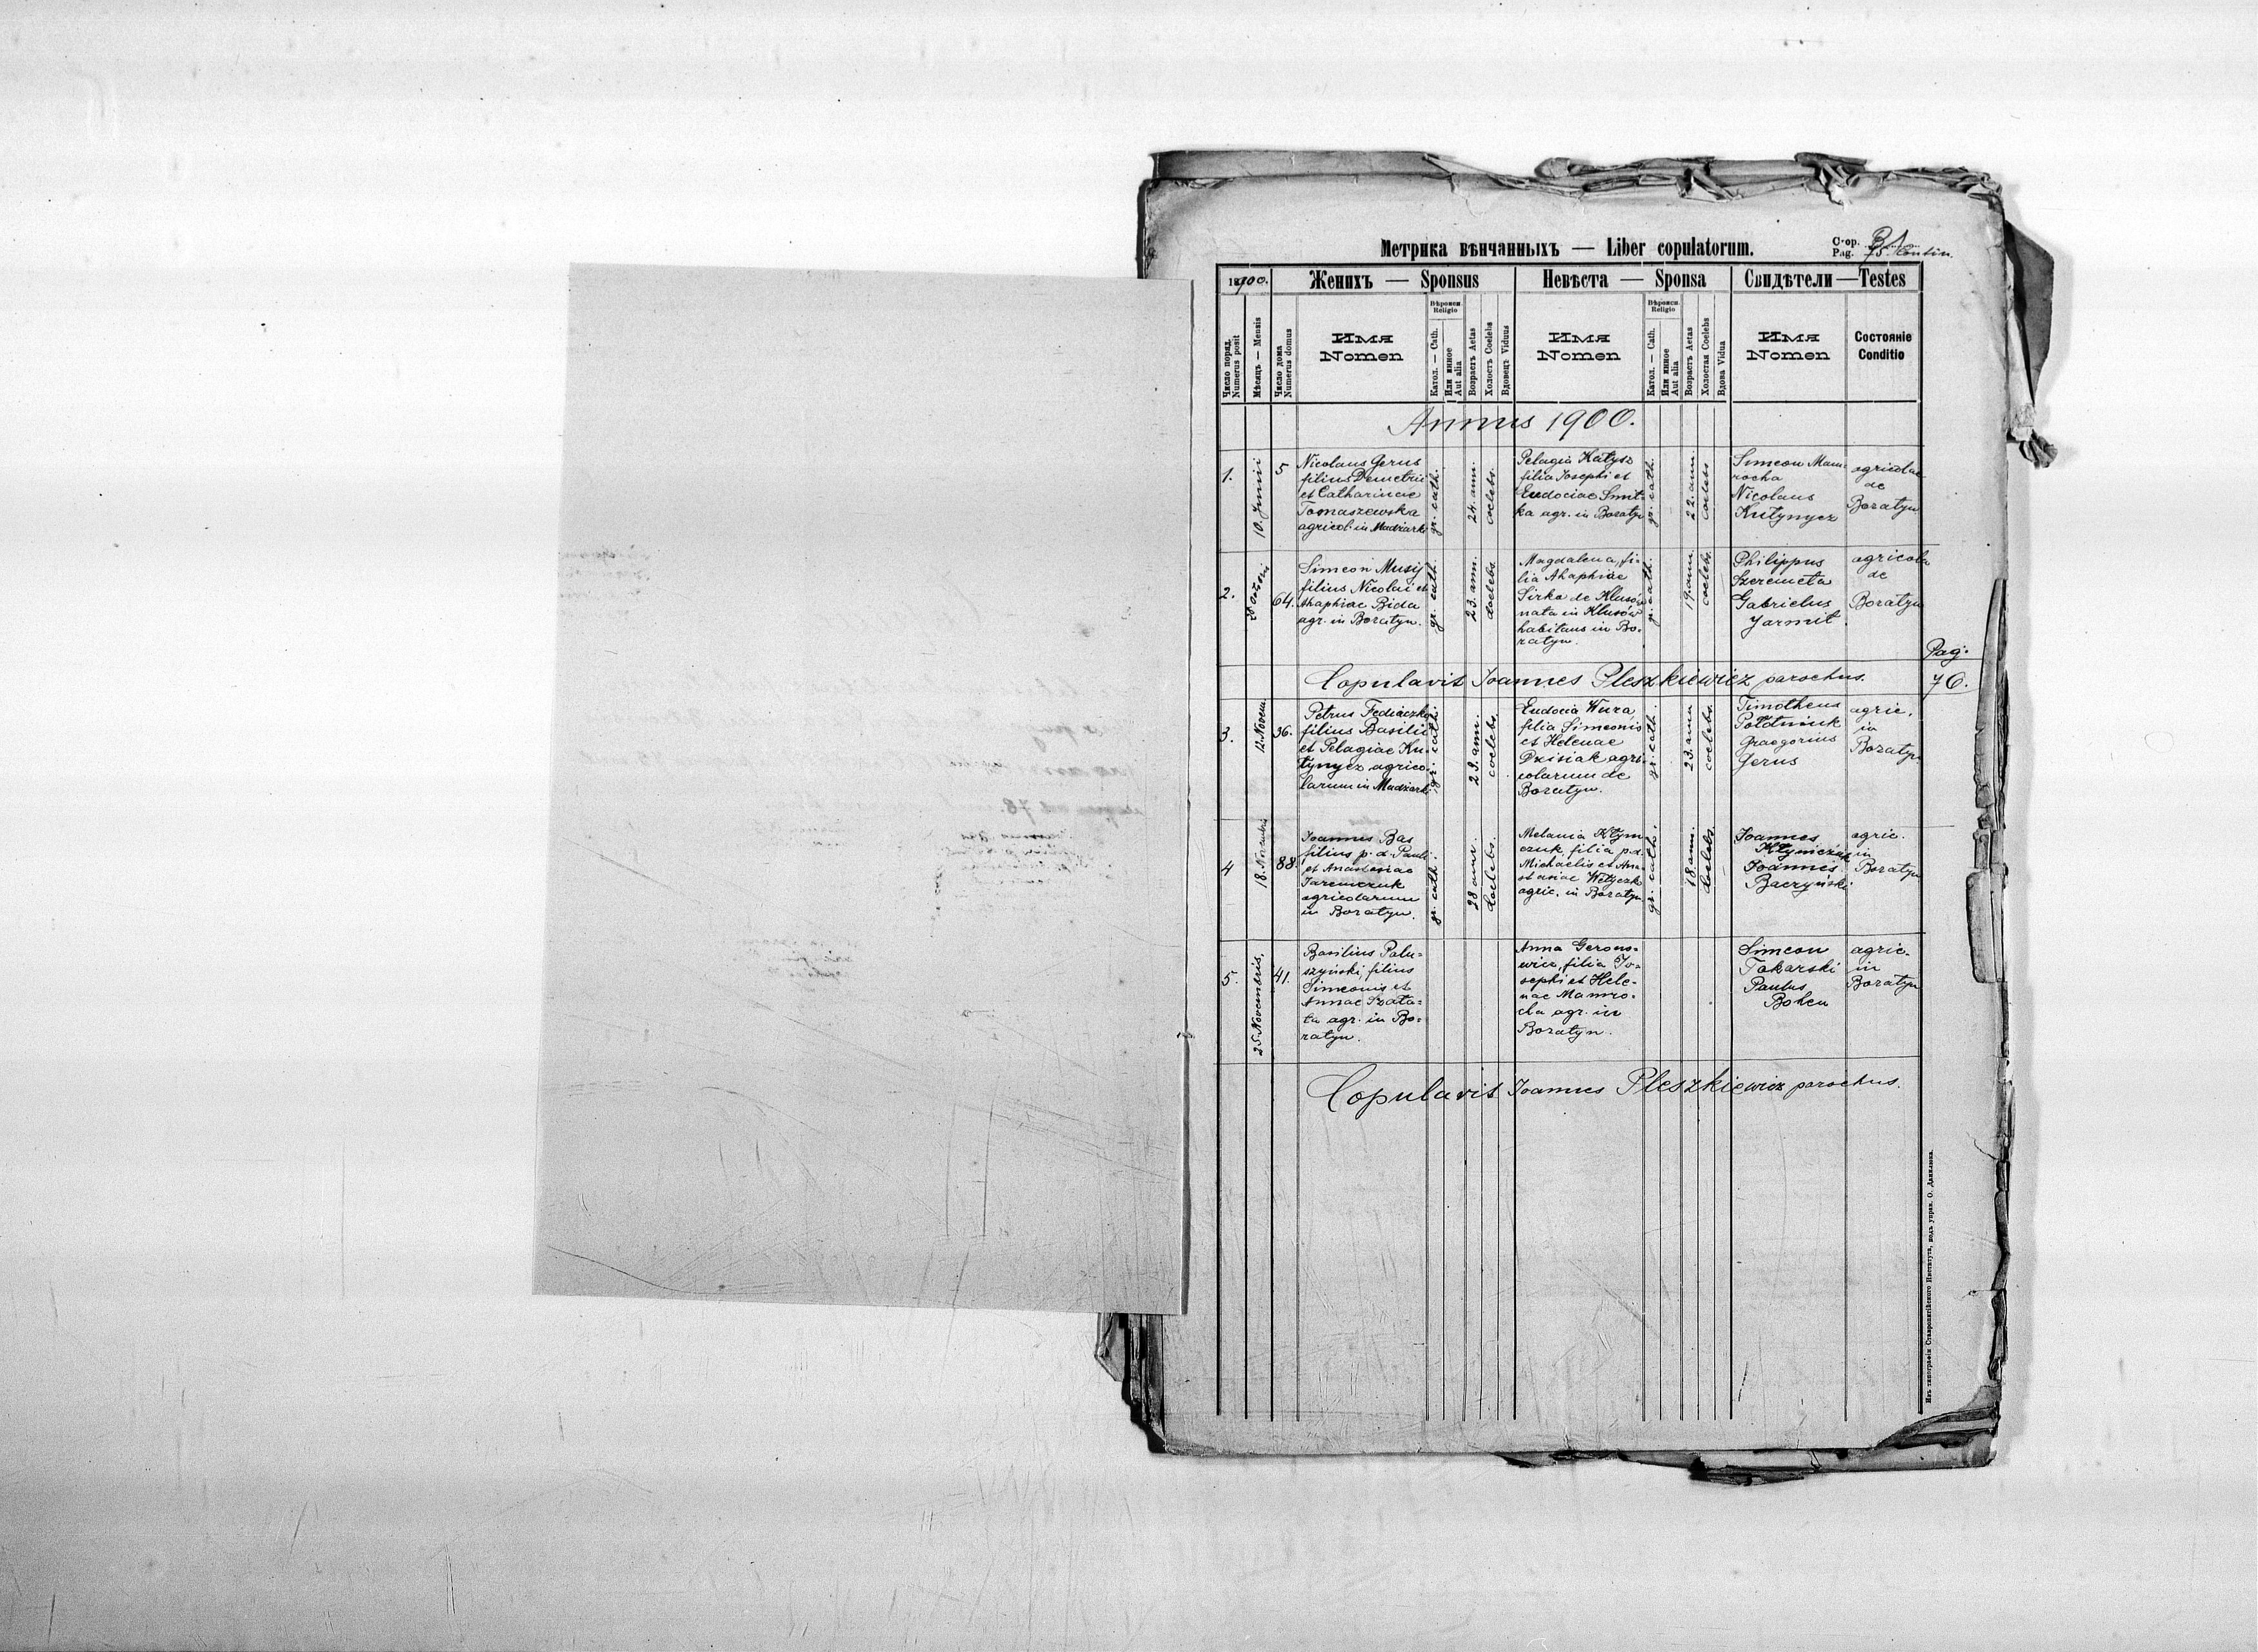 Метрика вѣнчанныхъ — Liber copulatorum.
Стор.
Pag. 75 Contin.
1900.
Женихъ — Sponsus
Невѣста — Sponsa
Свидѣтели — Testes
Число поряд.
Numerus posit
Мѣсяцъ — Mensis
Число дома
Numerus domus
Имя
Nomen
Вѣроисп.
Religio
Катол. — Cath.
Или инное
Aut alia
Возрастъ Aetas
Холостъ Coelebs
Вдовецъ Viduus
Имя
Nomen
Вѣроисп.
Religio
Катол. — Cath.
Или инное
Aut alia
Возрастъ Aetas
Холостая Coelebs
Вдова Vidua
Имя
Nomen
Состояніе
Conditio
Annus 1900.
1.
10. Junii
5
Nicolaus Gerus
filius Demetrii
et Catharinae
Tomaszewska
agricol. in Madziarki
gr. cath.
24. ann.
coelebs.
Pelagia Hatysz
filia Josephi et
Eudociae Smit-
ka agr. in Boratyn
gr. cath.
22. ann.
coelebs
Simeon Mam-
rocha
Nicolaus
Kutynycz
agricolae
de
Boratyn
2.
64.
Simeon Musij
filius Nicolai et
Ahaphiae Bida
agr. in Boratyn.
gr. cath.
23. ann.
coelebs
Magdalena, fi-
lia Ahaphiae
Sirko de Klusów
nata in Klusów
habitans in Bo-
ratyn.
gr. cath.
19. ann.
coelebs.
Philippus
Szeremeta
Gabrielus
Jarmit.
agricola
de
Boratyn
Pag.
76.
Copulavit Joannes Pleszkiewicz parochus.
3.
12. Novem.
36.
Petrus Fediaczko
filius Basilii
et Pelagiae Ku-
tynycz agrico-
larum in Madziarki
gr. cath.
23. ann.
coelebs.
Eudocia Wuza,
filia Simeonis
et Helenae
Dzisiak agri-
colarum de
Boratyn.
gr. cath.
23. ann
coelebs.
Timotheus
Połotniuk
Graegorius
Gerus
agric.
in
Boratyn
4
18. Novembris
88.
Joannes Bas
filius p. d. Pauli
et Anastasiae
Jaremczuk
agricolarum
in Boratyn.
gr. cath.
28 ann.
Coelebs.
Melania Klym-
czuk, filia p.d.
Michaelis et Ana-
stasiae
agric. in Boratyn
gr. cath.
18. ann.
Coelebs.
Joannes
Klymczuk
Joannes
Baczyński
agric.
in
Boratyn
5.
25. Novembris,
41.
Basilius Palu-
szyński, filius
Simeonis et
Annae Szata-
ta agr. in Bo-
ratyn.
Anna Gerono-
wicz, filia Jo-
sephi et Hele-
nae Mamro-
cha agr. in
Boratyn.
Simeon
Tokarski
Paulus
Bohen
agric.
in
Boratyn
Copulavit Joannes Pleszkiewicz parochus.
Изъ типографіи Ставропигійского Института, подъ управ. О. Данилюка.